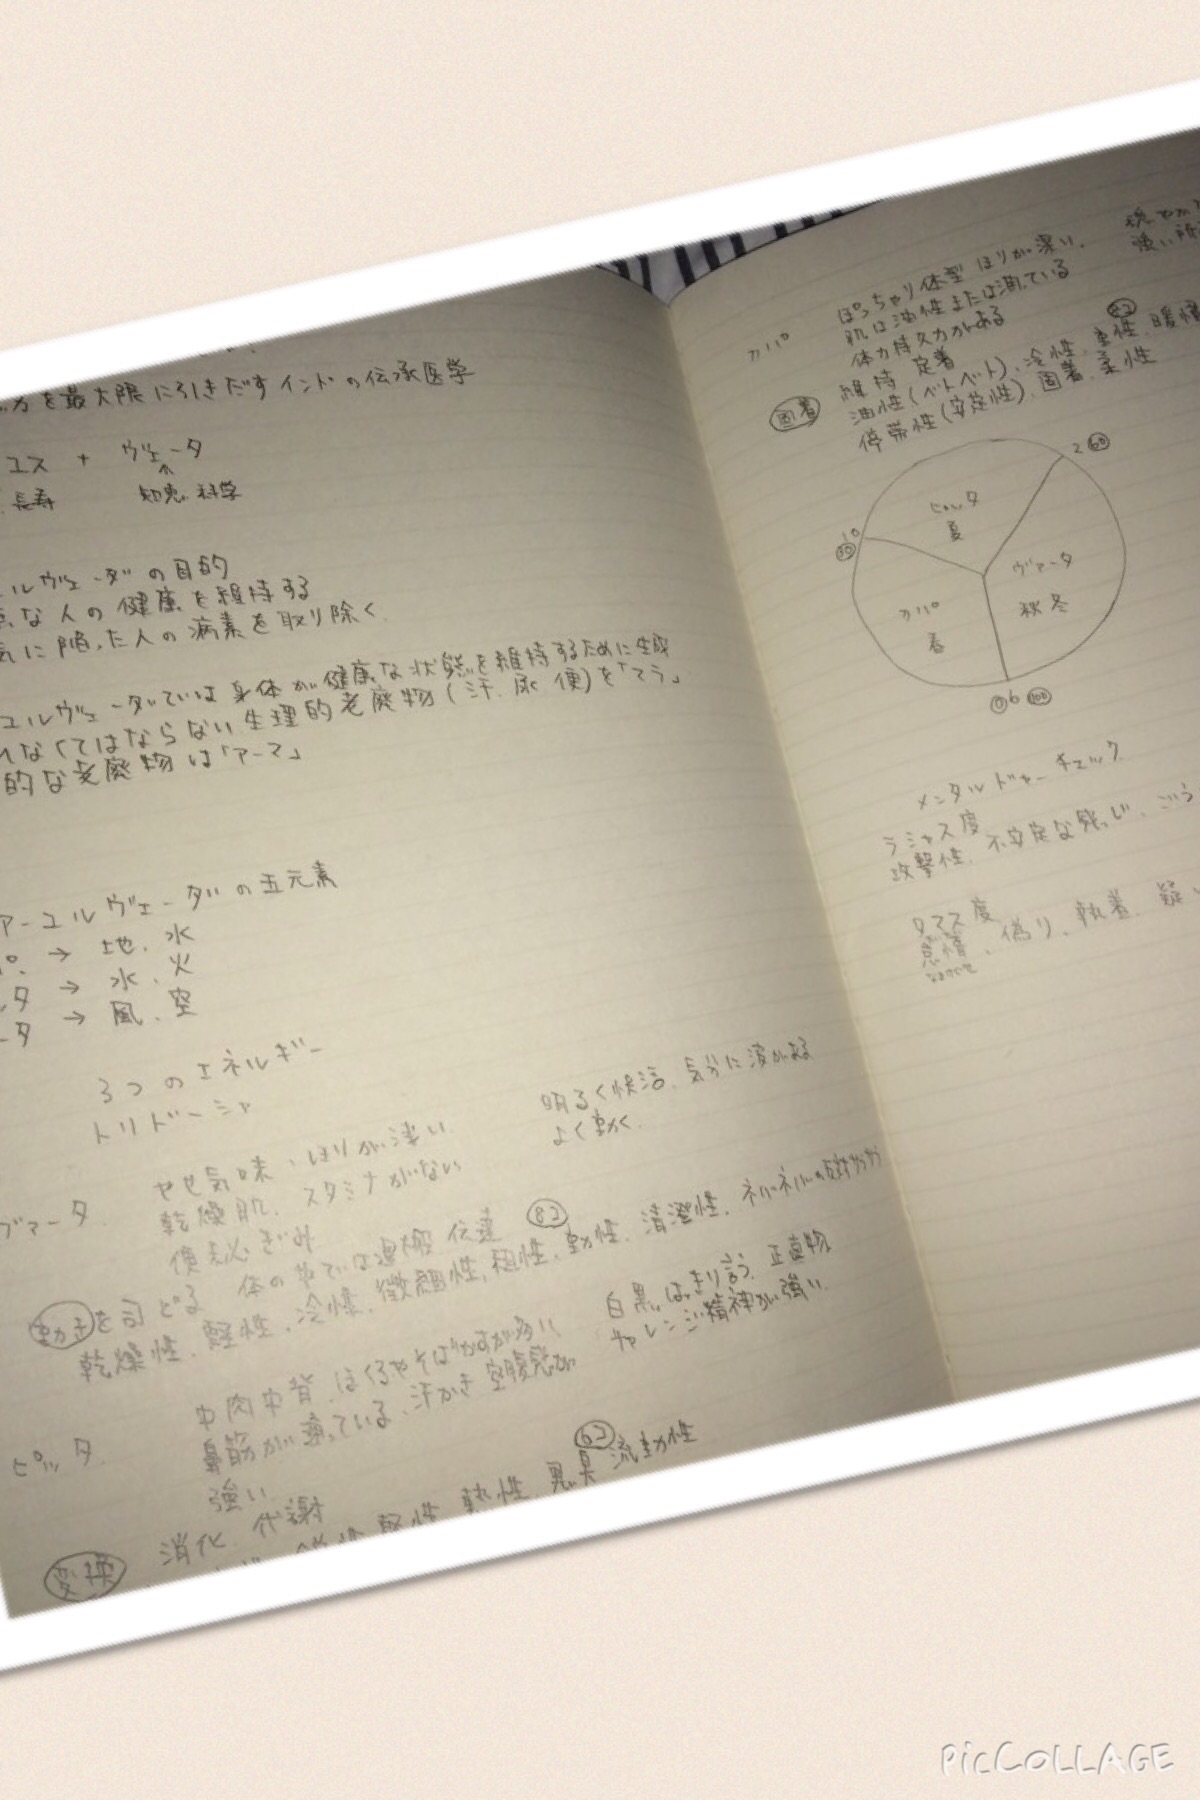 力を最大限に引きだすインドの伝承医学
ユス + ヴェータ
長寿 知恵.科学
ルヴェーダの目的
な人の健康を維持する
気に陥った人の病素を取り除く
ユルヴェーダでは身体が健康な状態を維持するために生成
なくてはならない生理的老廃物(汗.尿.便)を「マラ」
的な老廃物は「アーマ」
アーユルヴェーダの五元素
パ. → 地.水
タ → 水.火
ータ → 風.空
3つのエネルギー
トリドーシャ
ヴァータ
やせ気味、ほりが浅い.
乾燥肌.スタミナがない
便秘ぎみ
明るく快活.気分に波がある
よく動く.
動きを司どる 体の中では運搬 伝達
乾燥性.軽性.冷性.微細性.粗性.動性.清澄性.
ピッタ.
中肉中背.ほくろやそばかすが多い.
鼻筋が通っている.汗かき 空腹感が
強い.
白黒はっきり言う.正直物
チャレンジ精神が強い.
変換 消化.代謝
軽性.熱性.悪臭 流動性
カパ
ぽっちゃり体型 ほりが深い.
肌は油性または潤っている
体力持久力がある
固着 維持 定着
油性(ベトベト).冷性.重性.
停滞性(安定性).固着.柔性
2 60
ピッタ
夏
10
ヴァータ
秋冬
カパ
春
0 6 100
メンタルドーシャ チェック
ラジャス度
攻撃性.不安定な
タマス度
怠惰.偽り.執着.疑い
PicCOLLAGE